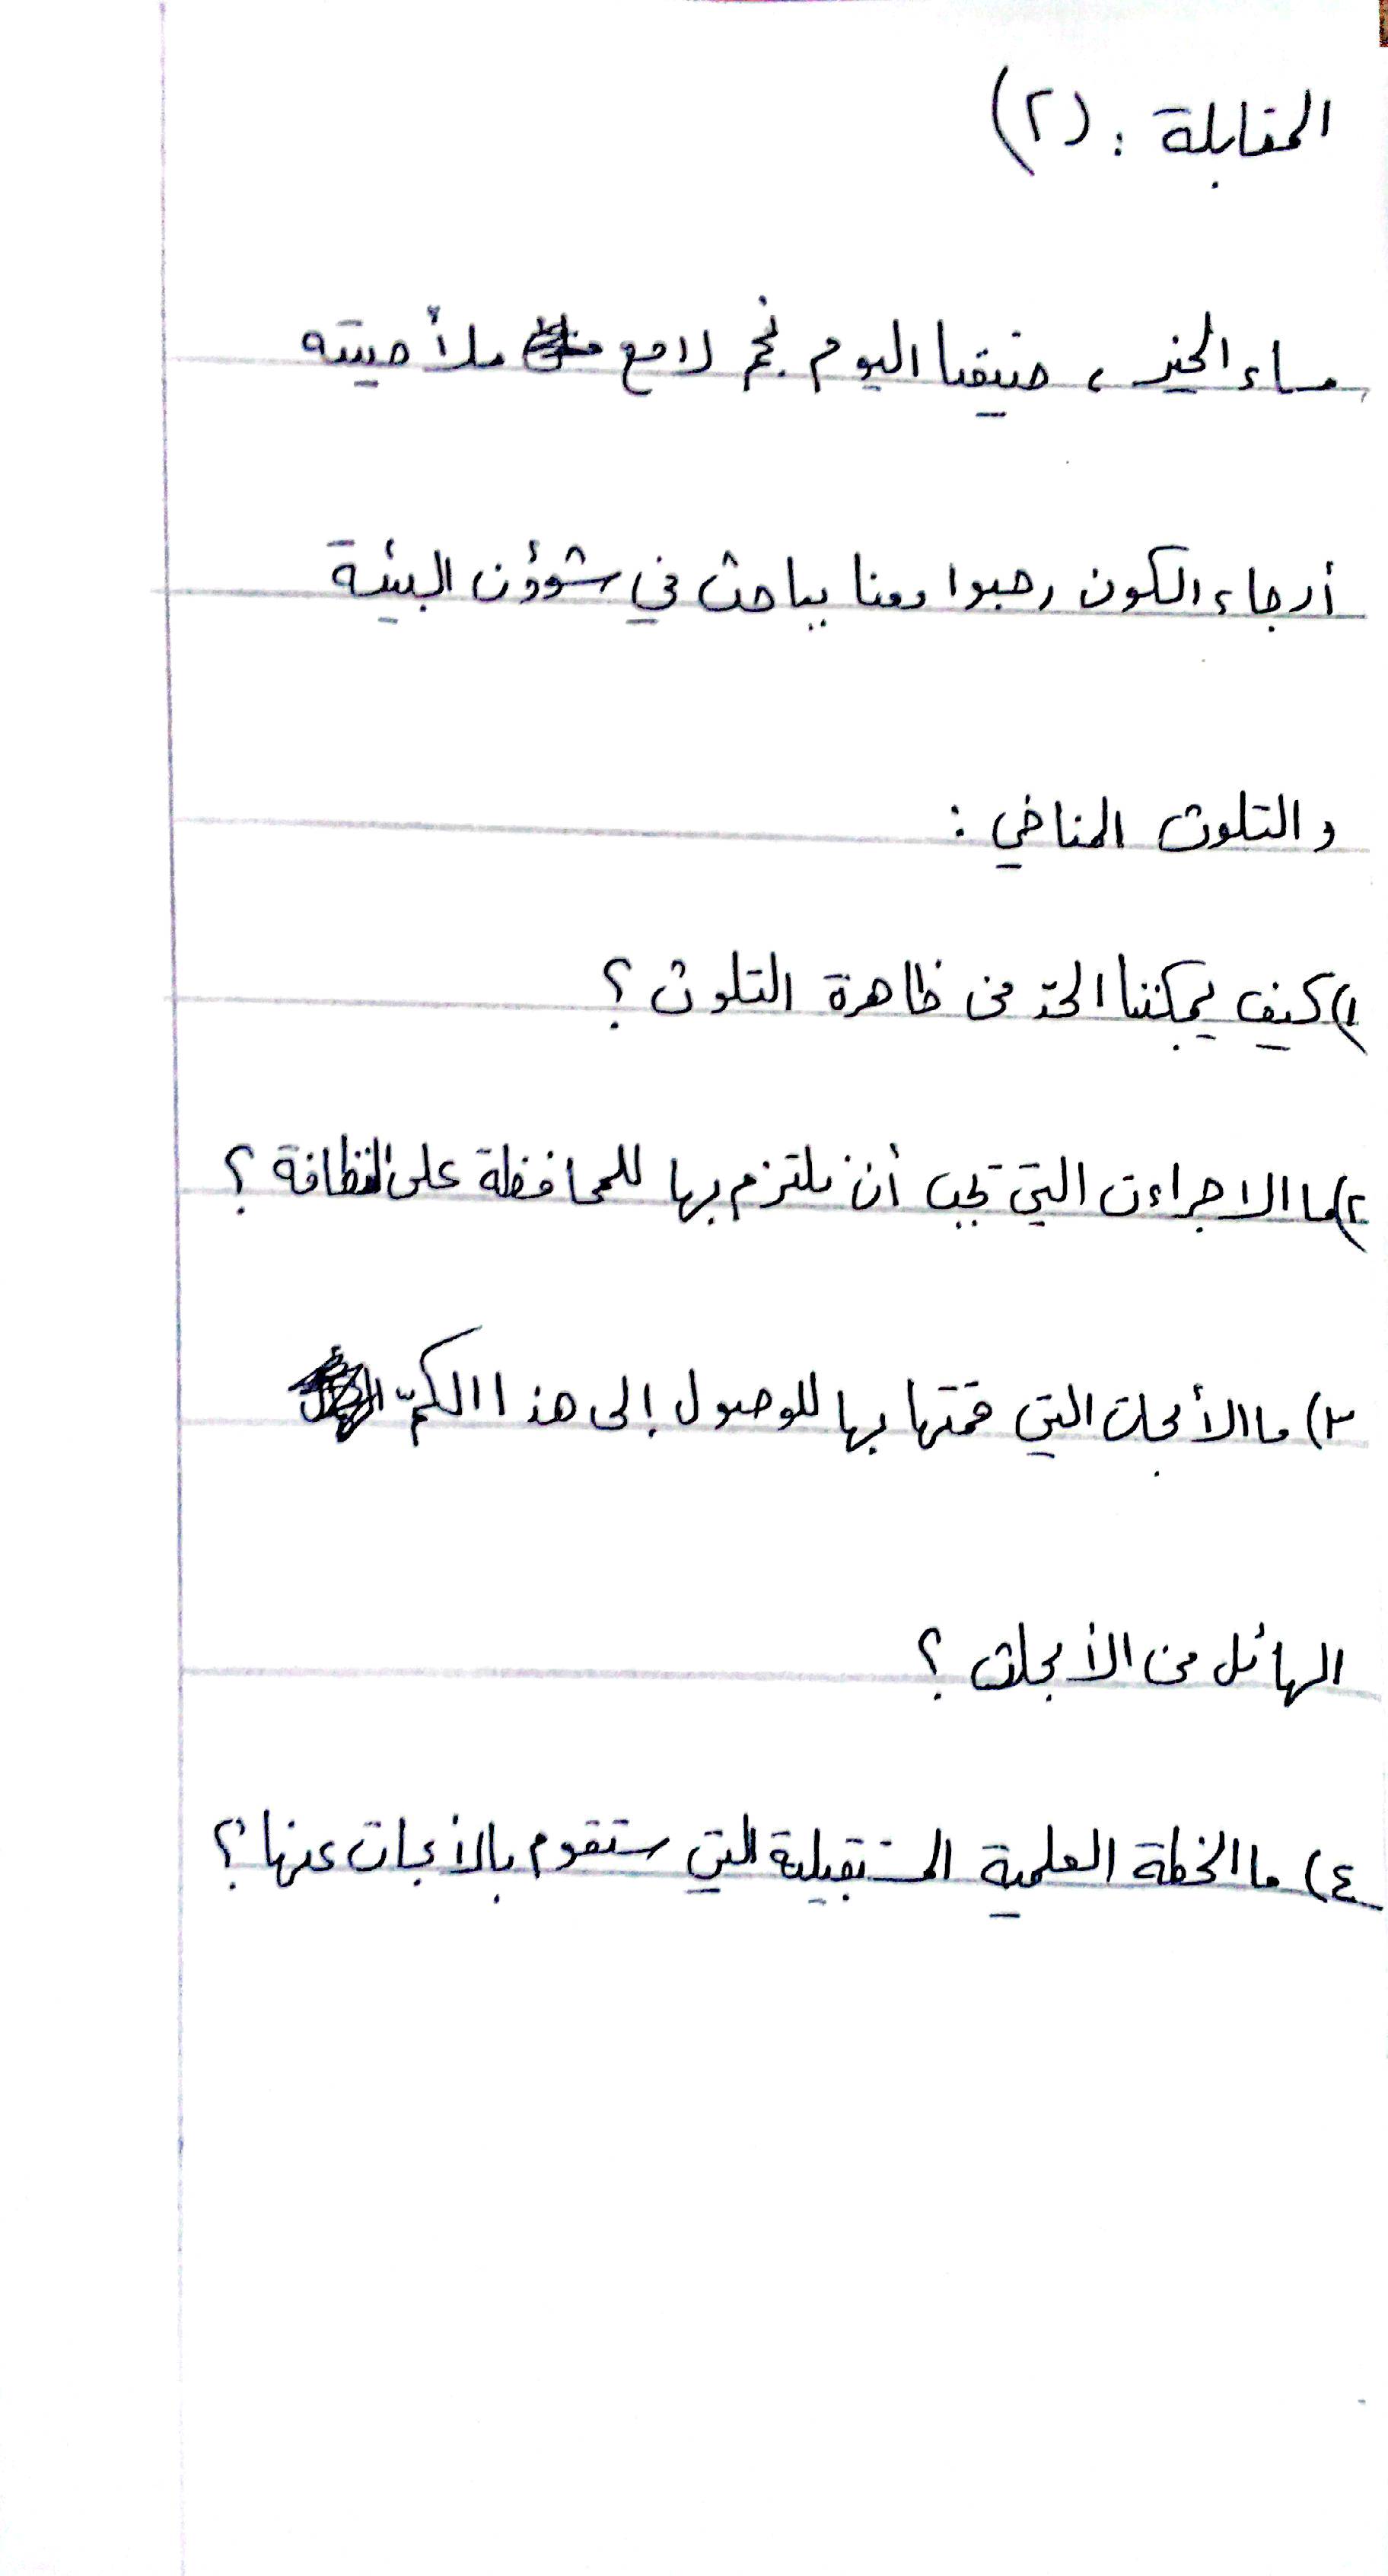 المقابلة : (٢)
مساء الخير ، ضيفنا اليوم نجم لامع ملأ صيته
أرجاء الكون رحبوا معنا بباحث في شوؤن البيئة
والتلوث المناخي :
١) كيف يمكننا الحد من ظاهرة التلوث ؟
٢) ما الاجراءت التي تجب أن نلتزم بها للمحافظة على النظافة ؟
٣) ما الأبحاث التي قمتها بها للوصول إلى هذا الكمّ
الهائل من الأبحاث ؟
٤) ما الخطة العلمية المستقبيلية التي ستقوم بالأبحاث عنها ؟